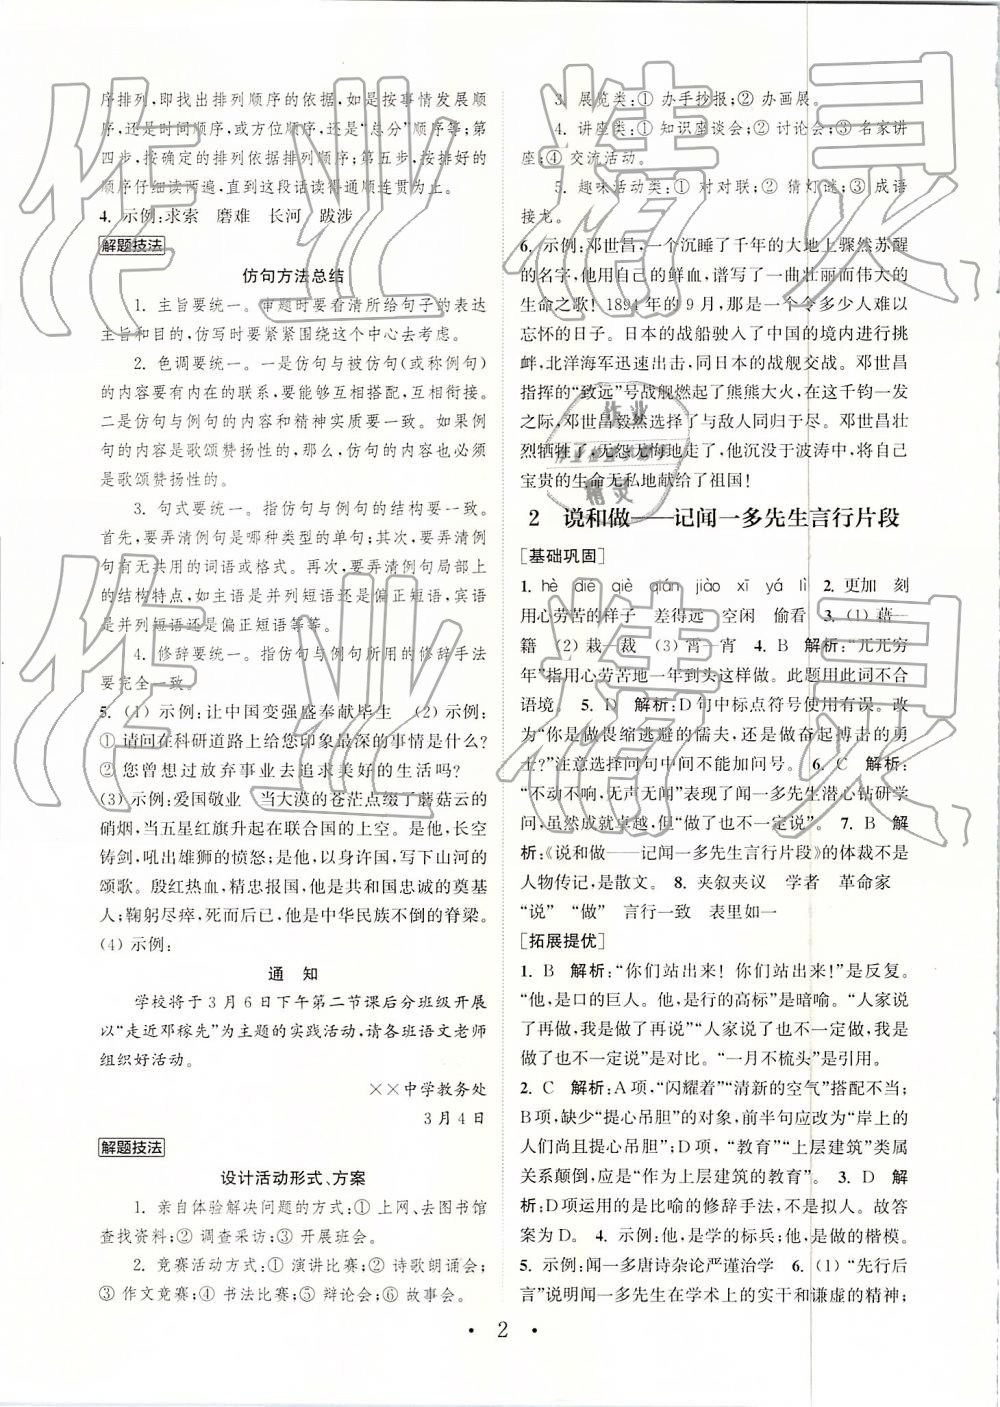 序排列,即找出排列顺序的依据,如是按事情发展顺
序,还是时间顺序,或方位顺序,还是“总分”顺序等;第
四步,按确定的排列依据排列顺序;第五步,按排好的
顺序仔细读两遍,直到这段话读得通顺连贯为止。
4. 示例:求索 磨难 长河 跋涉
解题技法
仿句方法总结
1. 主旨要统一。审题时要看清所给句子的表达
主旨和目的,仿写时要紧紧围绕这个中心去考虑。
2. 色调要统一。一是仿句与被仿句(或称例句)
的内容要有内在的联系,要能够互相搭配,互相衔接。
二是仿句与例句的内容和精神实质要一致。如果例
句的内容是歌颂赞扬性的,那么,仿句的内容也必须
是歌颂赞扬性的。
3. 句式要统一。指仿句与例句的结构要一致。
首先,要弄清例句是哪种类型的单句;其次,要弄清例句
有无共用的词语或格式。再次,要弄清例句局部上
的结构特点,如主语是并列短语还是偏正短语,宾语
是并列短语还是偏正短语等等。
4. 修辞要统一。指仿句与例句所用的修辞手法
要完全一致。
5. (1) 示例:让中国变强盛奉献毕生 (2) 示例:
① 请问在科研道路上给您印象最深的事情是什么?
② 您曾想过放弃事业去追求美好的生活吗?
(3) 示例:爱国敬业 当大漠的苍茫点缀了蘑菇云的
硝烟,当五星红旗升起在联合国的上空。是他,长空
铸剑,吼出雄狮的愤怒;是他,以身许国,写下山河的
颂歌。殷红热血,精忠报国,他是共和国忠诚的奠基
人;鞠躬尽瘁,死而后已,他是中华民族不倒的脊梁。
(4) 示例:
通 知
学校将于3月6日下午第二节课后分班级开展
以“走近邓稼先”为主题的实践活动,请各班语文老师
组织好活动。
××中学教务处
3月4日
解题技法
设计活动形式、方案
1. 亲自体验解决问题的方式:① 上网、去图书馆
查找资料;② 调查采访;③ 开展班会。
2. 竞赛活动方式:① 演讲比赛;② 诗歌朗诵会;
③ 作文竞赛;④ 书法比赛;⑤ 辩论会;⑥ 故事会。
3. 展览类:① 办手抄报;② 办画展。
4. 讲座类:① 知识座谈会;② 讨论会;③ 名家讲
座;④ 交流活动。
5. 趣味活动类:① 对对联;② 猜灯谜;③ 成语
接龙。
6. 示例:邓世昌,一个沉睡了千年的大地上骤然苏醒
的名字,他用自己的鲜血,谱写了一曲壮丽而伟大的
生命之歌!1894年的9月,那是一个令多少人难以
忘怀的日子。日本的战船驶入了中国的境内进行挑
衅,北洋海军迅速出击,同日本的战舰交战。邓世昌
指挥的“致远”号战舰燃起了熊熊大火,在这千钧一发
之际,邓世昌毅然选择了与敌人同归于尽。邓世昌壮
烈牺牲了,无怨无悔地走了,他沉没于波涛中,将自己
宝贵的生命无私地献给了祖国!
2 说和做——记闻一多先生言行片段
[基础巩固]
1. hè dié qiè qián jiào xī yá lì 2. 更加 刻
用心劳苦的样子 差得远 空闲 偷看 3. (1) 藉—
籍 (2) 栽—裁 (3) 宵—宵 4. B 解析:“兀兀穷
年”指用心劳苦地一年到头这样做。此题用此词不合
语境。 5. D 解析:D句中标点符号使用有误。改
为“你是做畏缩逃避的懦夫,还是做奋起搏击的勇
士?”注意选择问句中间不能加问号。 6. C 解析:
“不动不响,无声无闻”表现了闻一多先生潜心钻研学
问,虽然成就卓越,但“做了也不一定说”。 7. B 解
析:《说和做——记闻一多先生言行片段》的体裁不是
人物传记,是散文。 8. 夹叙夹议 学者 革命家
“说” “做” 言行一致 表里如一
[拓展提优]
1. B 解析:“你们站出来!你们站出来!”是反复。
“他,是口的巨人。他,是行的高标”是暗喻。“人家说
了再做,我是做了再说”“人家说了也不一定做,我是
做了也不一定说”是对比。“一月不梳头”是引用。
2. C 解析:A项,“闪耀着”“清新的空气”搭配不当;
B项,缺少“提心吊胆”的对象,前半句应改为“岸上的
人们尚且提心吊胆”;D项,“教育”“上层建筑”类属
关系颠倒,应是“作为上层建筑的教育”。 3. D 解
析:D项运用的是比喻的修辞手法,不是拟人。故答
案为D。 4. 示例:他,是学的标兵;他,是做的楷模。
5. 示例:闻一多唐诗杂论严谨治学 6. (1) “先行后
言”说明闻一多先生在学术上的实干和谦虚的精神;
• 2 •
作业精灵
作业精灵
作业
精灵